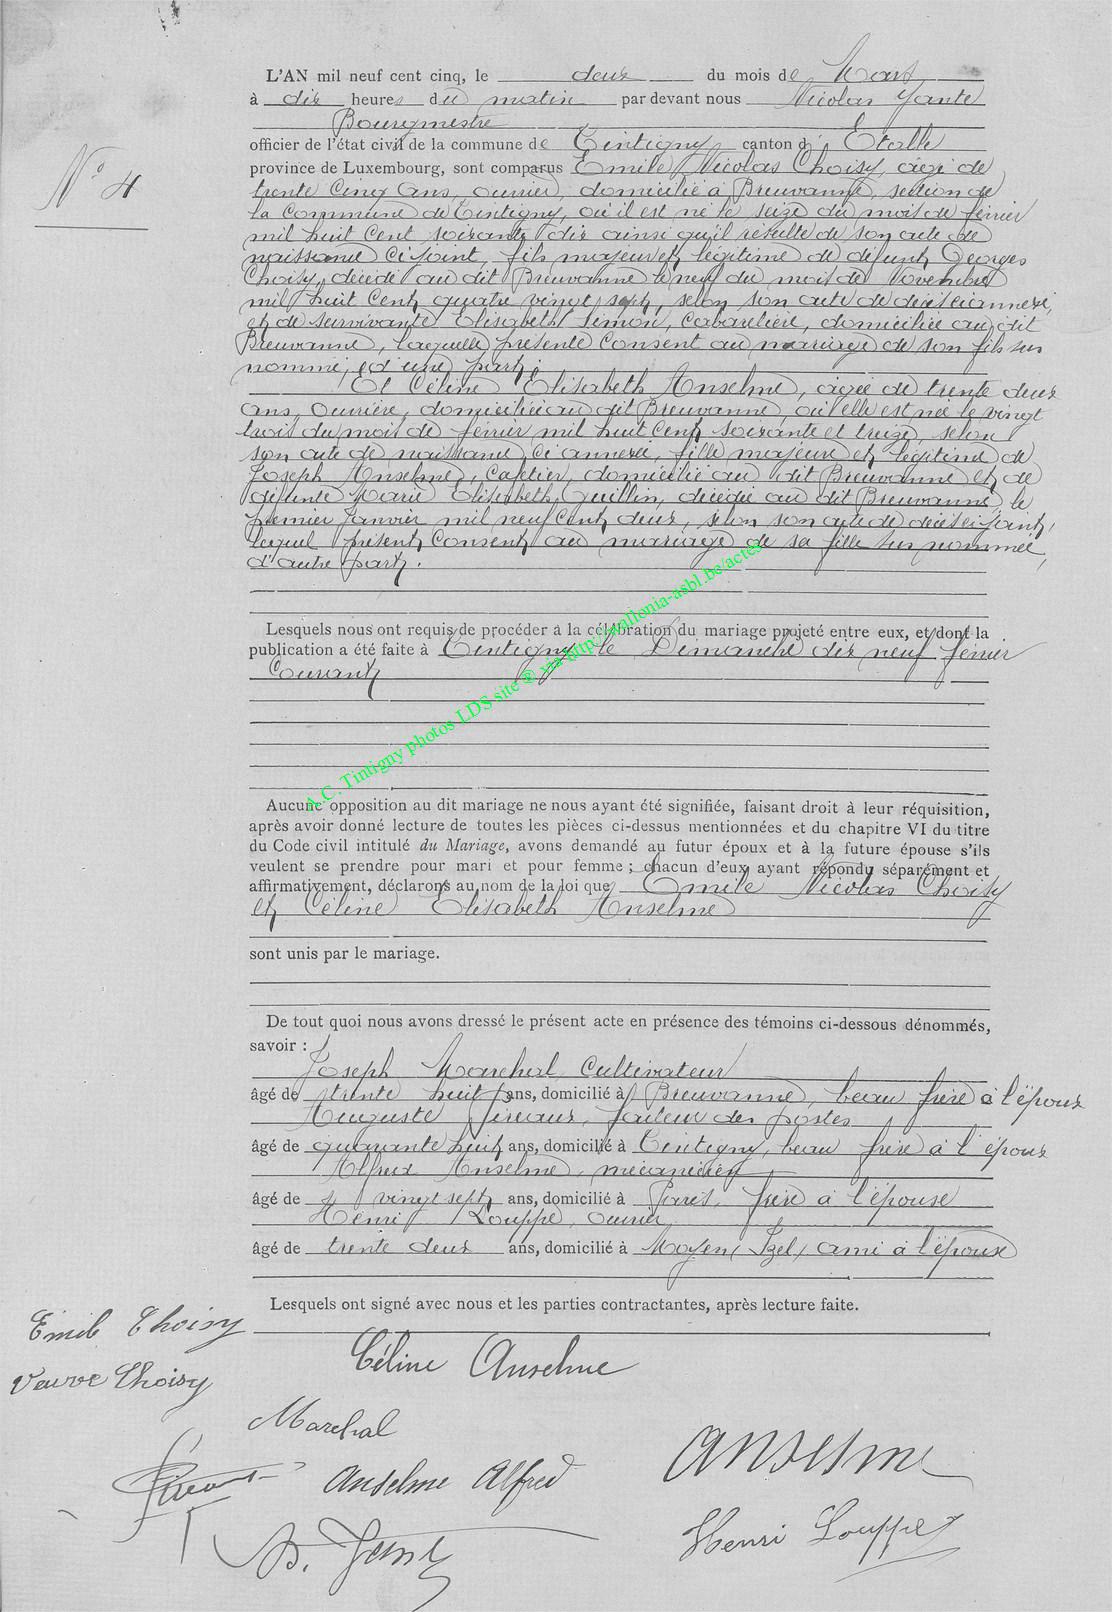 L'AN mil neuf cent cinq, le deux du mois de Mars
à dix heures du matin par devant nous Nicolas Yante
Bourgmestre
officier de l'état civil de la commune de Tintigny canton d' Etalle
N° 4
province de Luxembourg, sont comparus Emile Nicolas Choisy, âgé de
trente cinq ans, ouvrier, domicilié à Breuvanne, section de
la Commune de Tintigny, où il est né le seize du mois de février
mil huit cent soixante dix ainsi qu'il résulte de son acte de
naissance ci joint, fils majeur et légitime de défunt Georges
Choisy, décédé au dit Breuvanne le neuf du mois de Novembre
mil huit Cent quatre vingt sept, selon son acte de décès ci annexé,
et de survivante Elisabeth Simon, Cabaretière, domiciliée au dit
Breuvanne, laquelle présente Consent au mariage de son fils sus
nommé, d'une part;
Et Céline Elisabeth Anselme, âgée de trente deux
ans, Ouvrière, domiciliée au dit Breuvanne, où elle est née le vingt
trois du mois de février mil huit Cent soixante et treize, selon
son acte de naissance, ci annexé, fille majeure et légitime de
Joseph Anselme, Cafetier, domicilié au dit Breuvanne et de
défunte Marie Elisabeth Guillin, décédée au dit Breuvanne, le
premier Janvier mil neuf Cent deux, selon son acte de décès ci joint,
lequel présent Consent au mariage de sa fille sus nommée,
d'autre part.
Lesquels nous ont requis de procéder à la célébration du mariage projeté entre eux, et dont la
publication a été faite à Tintigny le Dimanche dix neuf février
Courant
A.C. Tintigny photos LDS site © via http://wallonia-asbl.be/actes
Aucune opposition au dit mariage ne nous ayant été signifiée, faisant droit à leur réquisition,
après avoir donné lecture de toutes les pièces ci-dessus mentionnées et du chapitre VI du titre
du Code civil intitulé du Mariage, avons demandé au futur époux et à la future épouse s'ils
veulent se prendre pour mari et pour femme ; chacun d'eux ayant répondu séparément et
affirmativement, déclarons au nom de la loi que Emile Nicolas Choisy
et Céline Elisabeth Anselme
sont unis par le mariage.
De tout quoi nous avons dressé le présent acte en présence des témoins ci-dessous dénommés,
savoir :
Joseph Marechal Cultivateur
âgé de trente huit ans, domicilié à Breuvanne, beau frère à l'époux
Auguste facteur des postes
âgé de quarante huit ans, domicilié à Tintigny, beau frère à l'époux
Alfred Anselme, mécanicien
âgé de vingt sept ans, domicilié à Paris, frère à l'épouse
Henri Louppe, ouvrier
âgé de trente deux ans, domicilié à Moyen, Izel, ami à l'épouse
Lesquels ont signé avec nous et les parties contractantes, après lecture faite.
Emile Choisy
Céline Anselme
Veuve Choisy
Marchal
Anselme
Anselme Alfred
Henri Louppe